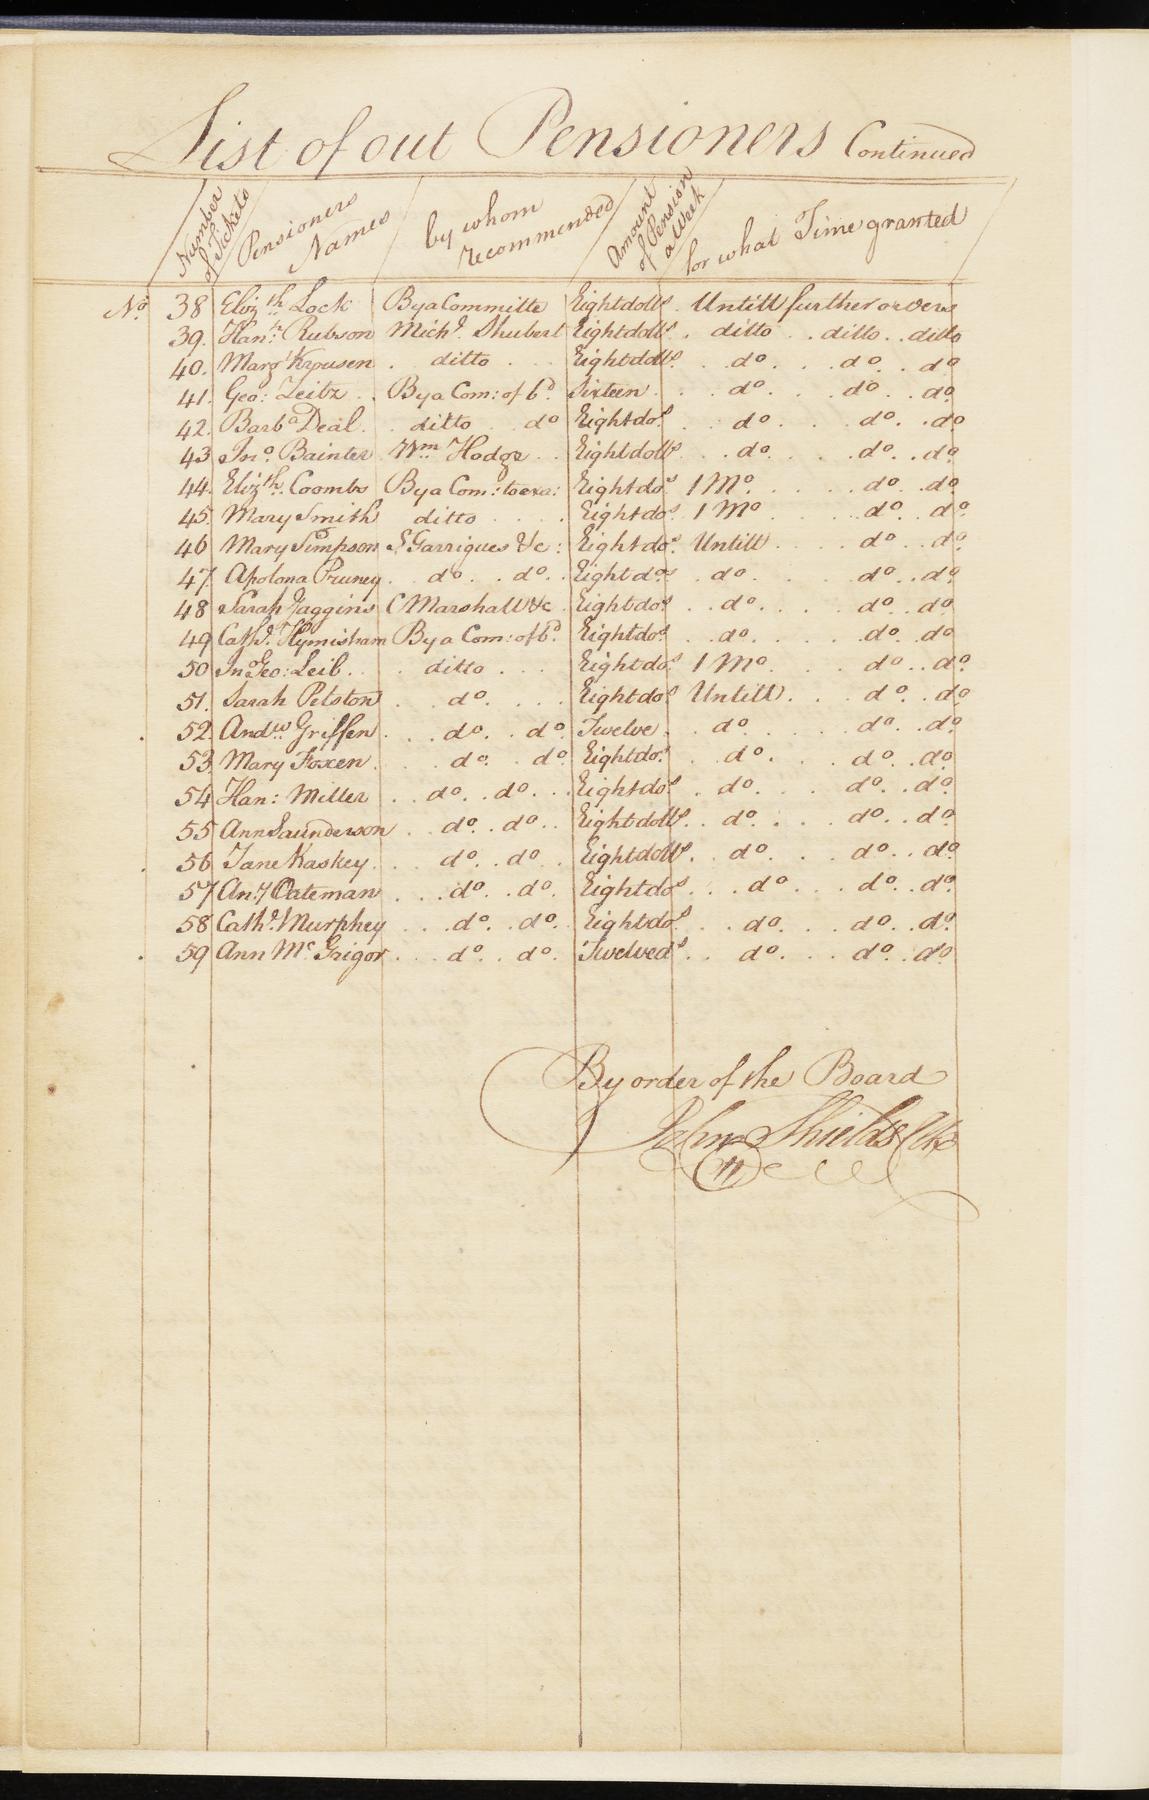 List of out Pensioners Continued
Number of Tickets Pensioners Names by whom recommended Amount of Pension a Week for what Time granted
No. 38 Eliz.th Lock By a Committe Eight doll.s . Untill further orders
39. Han.h Rubson Mich.l Shubert Eight doll.s . ditto . . ditto . . ditto
40. Marg.t Krousen . ditto . . . Eight doll.s . do . . . do . . do
41. Geo: Leitz . . By a Com: of b.d Sixteen . . . do . . . do . . do
42. Barb.a Deal . . ditto . . do Eight do.s . . do . . . do . . do
43 Jno. Bainter Wm Hodge . . Eight doll.s . . do . . . . do . . do
44. Eliz.th Coombs By a Com: to exa: Eight do.s 1 Mo. . . . . do . . do
45. Mary Smith ditto . . . . Eight do.s 1 Mo . . . . do . . do
46 Mary Simpson S Garrigues &c : Eight do.s Untill . . . . do . . do
47 Apolona Pruney . . do . . do . . Eight do.s . do . . . . do . . do
48 Sarah Jaggins C Marshall &c . Eight do.s . . do . . . . do . . do
49 Cath.e Hymisham By a Com: of b.d Eight do.s . do . . . . do . . do
50 Jn Geo: Leib . . . ditto . . . Eight do.s 1 Mo . . . do . . do
51. Sarah Pelston . . do . . . . Eight do.s Untill . . . do . . do
52. And.w Griffen . . . do . . do Twelve . . do . . . . do . . do
53 Mary Foxen . . . do . . do Eight do.s . . do . . . do . . do
54 Han: Miller . . do . . do . . . Eight do.s . do . . . do . . do
55 Ann Saunderson . . do . . do . . Eight doll.s . . do . . . do . . do
56 Jane Kaskey . . . do . . do . . Eight doll.s . . do . . . do . . do
57 An.y Oateman . . . do . . do . Eight do.s . . . do . . . do . . do
58 Cath.e Murphey . . . do . . do . Eight do.s . . . do . . . do . . do
59 Ann Mc Grigor . . . do . . do . Twelve d.s . . do . . . do . . do
By order of the Board
John Shields Clk